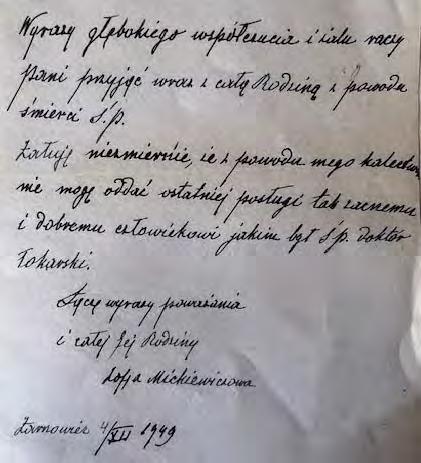 Wyrazy głębokiego współczucia i żalu raczy
Pani przyjąć wraz z całą Rodziną z powodu
śmierci Ś.p.
Żałuję niezmiernie, że z powodu mego kalectwa
nie mogę oddać ostatniej posługi tak zacnemu
i dobremu człowiekowi jakim był ś.p. doktór
Tokarski.
Łączę wyrazy poważania
i całej Jej Rodziny
Zofja Mickiewiczowa
Żarnowiec 4/XII 1949